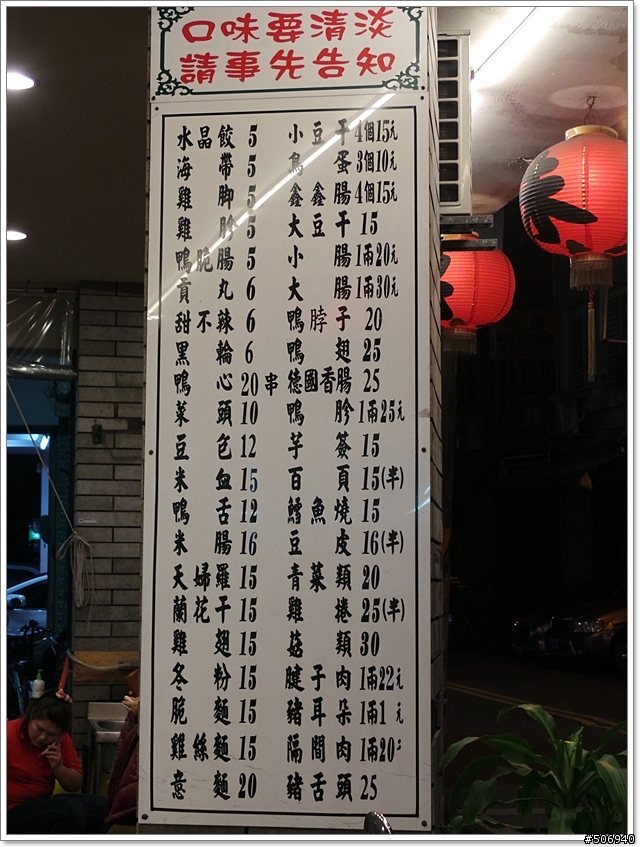 口味要清淡
請事先告知
水晶餃 5 小豆干 4個15元
海帶 5 鳥蛋 3個10元
雞腳 5 鑫鑫腸 4個15元
雞胗 5 大豆干 15
鴨脆腸 5 小腸 1兩20元
貢丸 6 大腸 1兩30元
甜不辣 6 鴨脖子 20
黑輪 6 鴨翅 25
鴨心 20串 德國香腸 25
菜頭 10 鴨胗 1兩25元
豆包 12 芋簽 15
米血 15 百頁 15(半)
鴨舌 12 鱈魚燒 15
米腸 16 豆皮 16(半)
天婦羅 15 青菜類 20
蘭花干 15 雞捲 25(半)
雞翅 15 菇類 30
冬粉 15 腱子肉 1兩22元
脆麵 15 豬耳朵 1兩1 元
雞絲麵 15 隔間肉 1兩20
意麵 20 豬舌頭 25
#506940